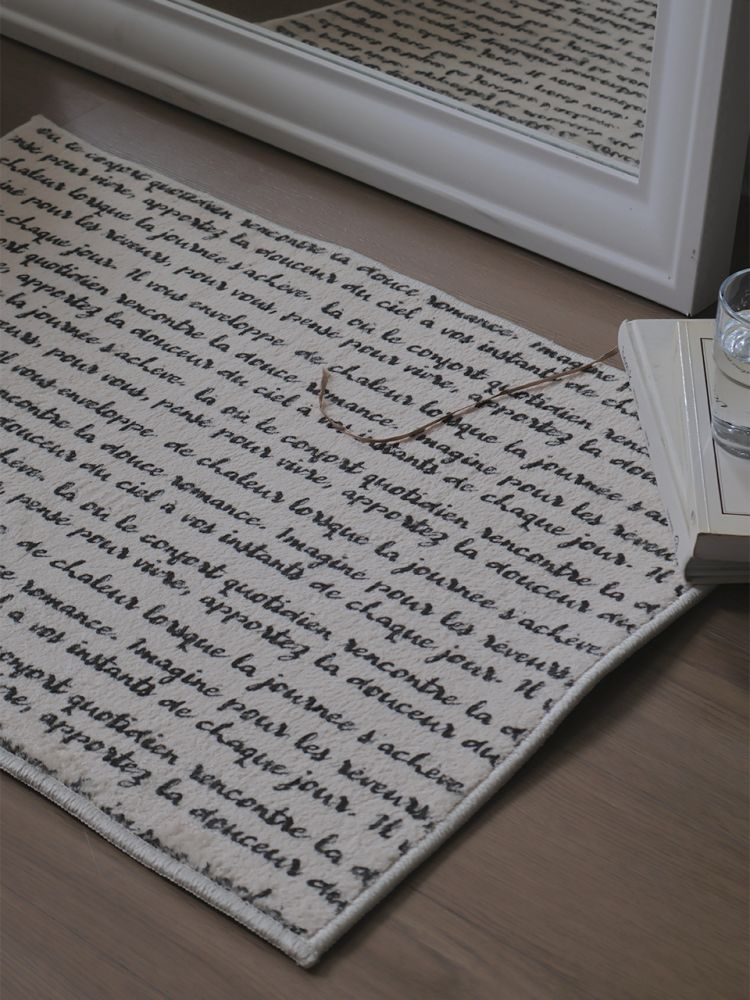 où le confort quotidien rencontre la douce romance. Imagine
nsé pour vivre, apportez la douceur du ciel à vos instants de
chaleur lorsque la journée s'achève. là où le confort quotidien renc
né pour les rêveurs, pour vous, pensé pour vivre, apportez la dou
chaque jour. Il vous enveloppe de chaleur lorsque la journée s'
ort quotidien rencontre la douce romance. Imagine pour les rêveu
e, apportez la douceur du ciel à vos instants de chaque jour. Il
la journée s'achève. là où le confort quotidien rencontre la d
eurs, pour vous, pensé pour vivre, apportez la douceur du
Il vous enveloppe de chaleur lorsque la journée s'achève.
ncontre la douce romance. Imagine pour les rêveurs,
ouceur du ciel à vos instants de chaque jour. Il v
hève. là où le confort quotidien rencontre la d
pensé pour vivre, apportez la douceur du
de chaleur lorsque la journée s'achève
e romance. Imagine pour les rêveurs,
à vos instants de chaque jour. Il v
confort quotidien rencontre la d
vre, apportez la douceur du